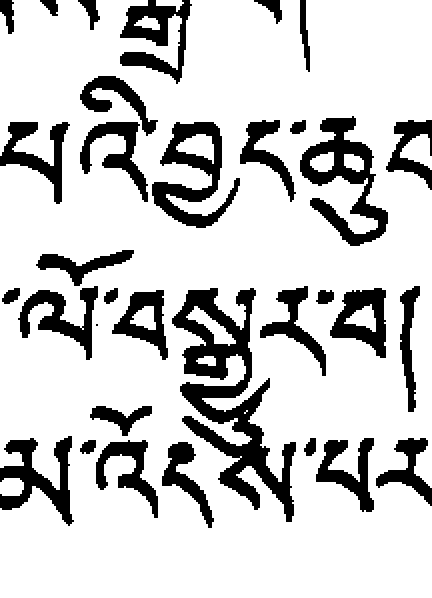 པའི་བྱང་ཆུབ
་ལོ་བསྒྱུར་བ།
མ་འོངས་པར